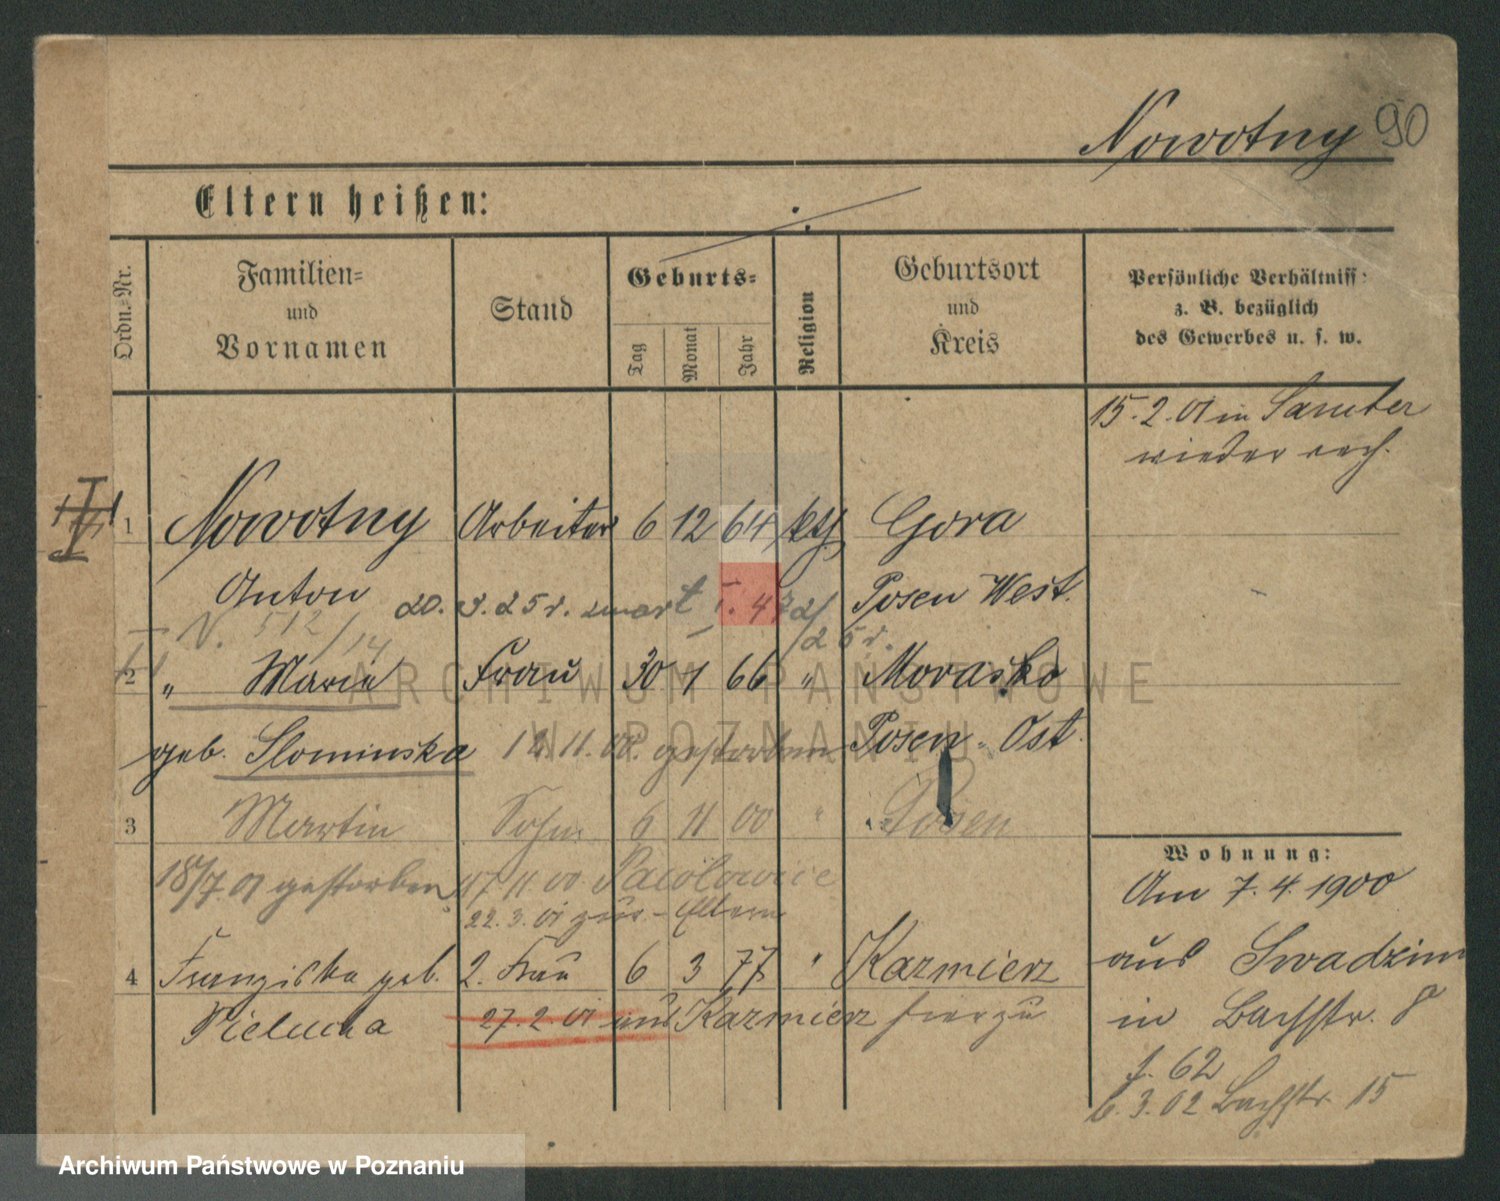 Nowotny 90
Eltern heißen:
Ordn.-Nr.
Familien-
und
Vornamen
Stand
Geburts-
Tag
Monat
Jahr
Religion
Geburtsort
und
Kreis
Persönliche Verhältniss-
z. B. bezüglich
des Gewerbes u. s. w.
15.2.01 in Samter
wieder
1 Nowotny Arbeiter 6 12 64 Gora
Anton 20. 25 Posen West.
N. 512/14
2 " Marie Frau 30 1 66 " Morasko
geb. Slominska 12.11.00. gestorben Posen Ost.
3 Martin Sohn 6 11 00 " Posen
18/7.01 gestorben 17 11 00
22.3.01 zur Eltern
4 Franziska geb. 2. Frau 6 3 77 " Kazmierz
Pielucha 27.2.01 aus Kazmierz hierzu
Wohnung:
Am 7.4.1900
aus Swadzim
in Bachstr. 8
f. 62
6.3.02 Bachstr. 15
ARCHIWUM PAŃSTWOWE
W POZNANIU
Archiwum Państwowe w Poznaniu